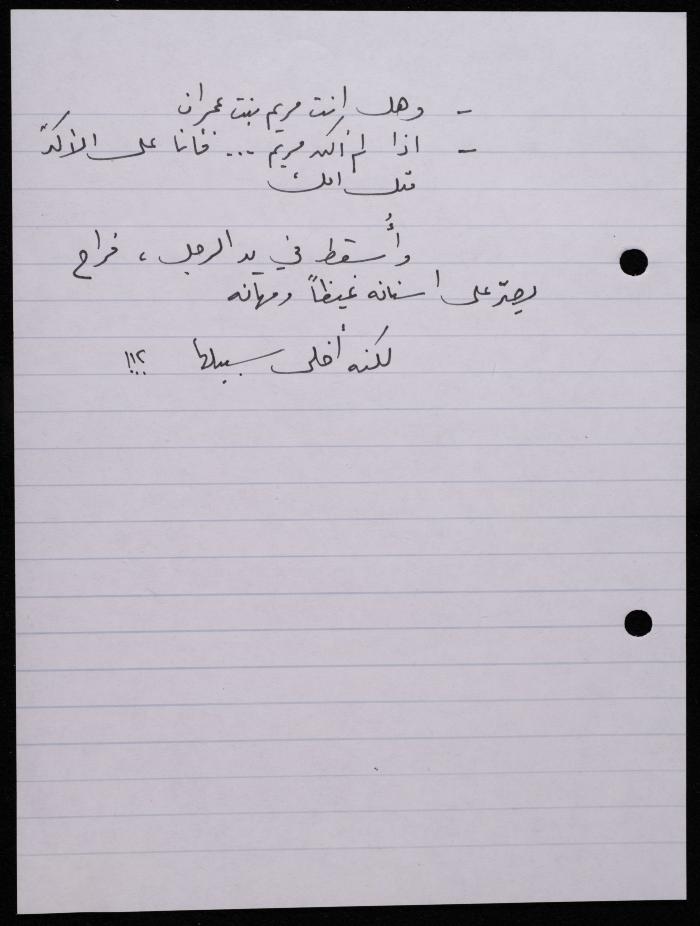 - وهل انت مريم بنت عمران
- اذا لم أكن مريم ... فأنا على الأكدّ
وأُسقط في يد الرجل ، فراح
يصرّ على اسنانه غيظاً ومهانه
لكنه أخلى سبيلها !!؟